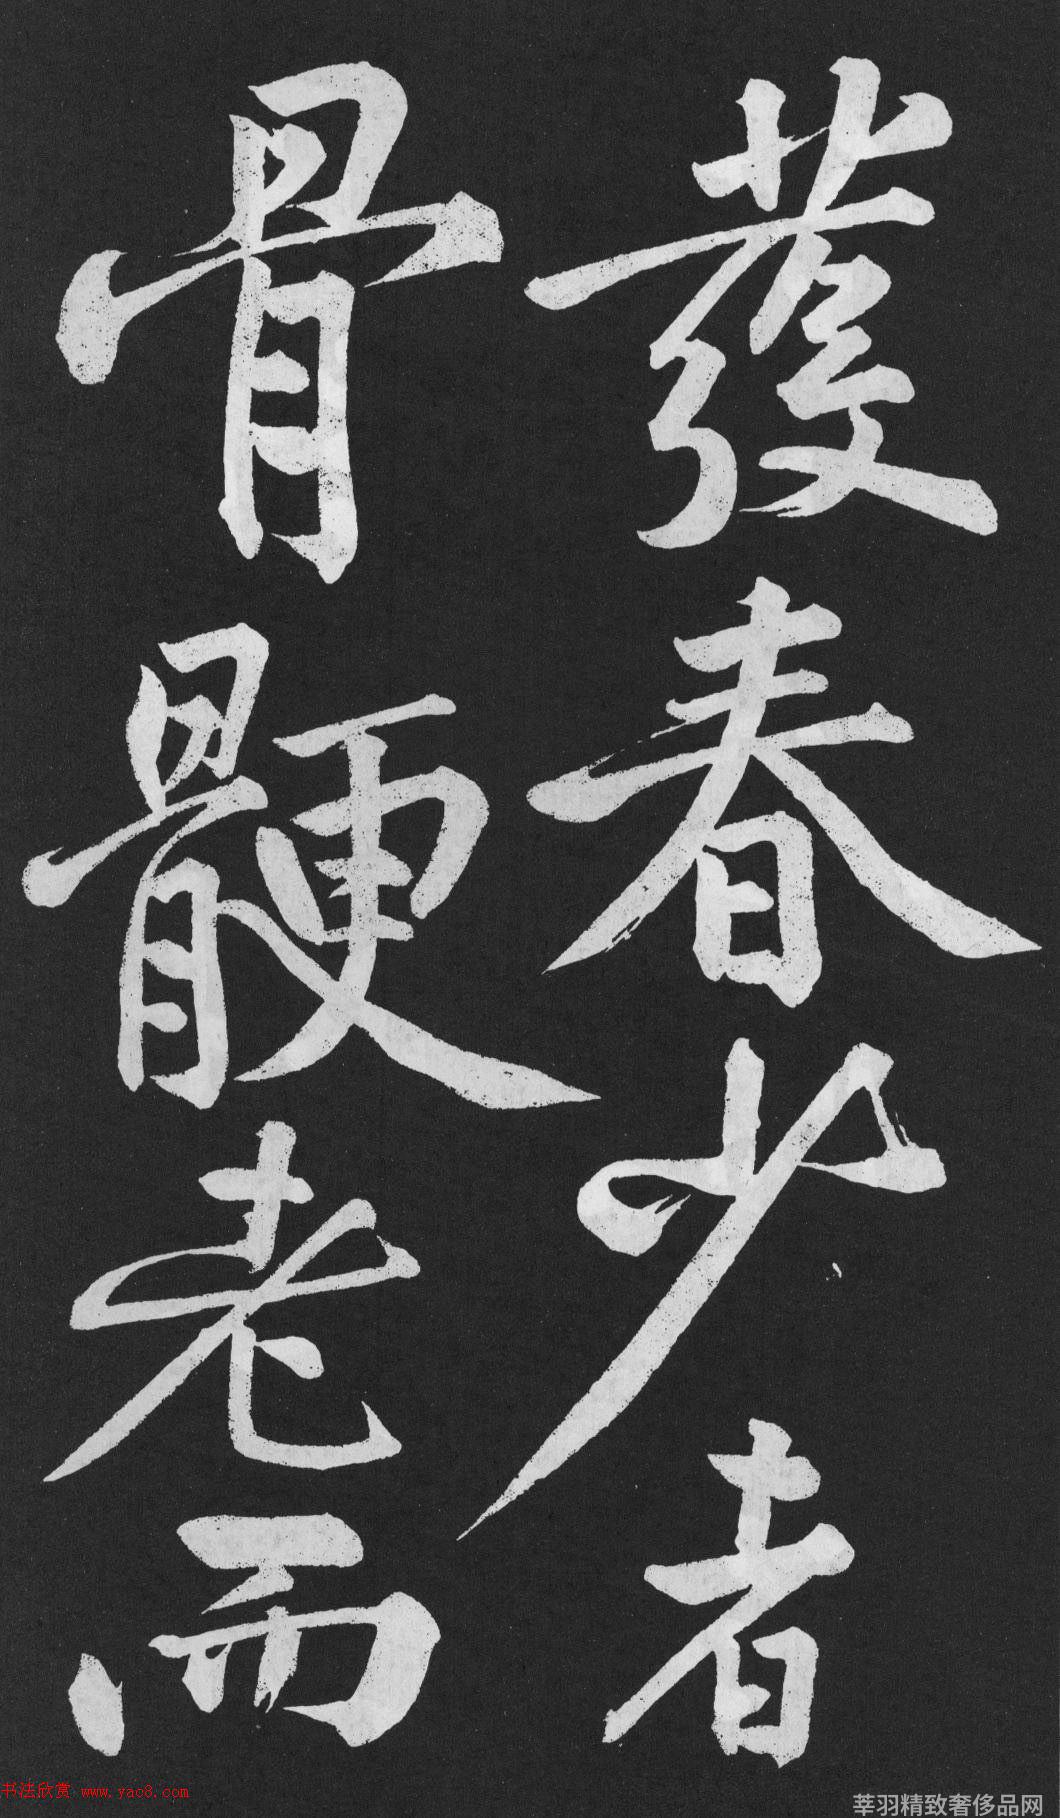 發春少者
骨鯁老而
书法欣赏 www.yac8.com
莘羽精致奢侈品网